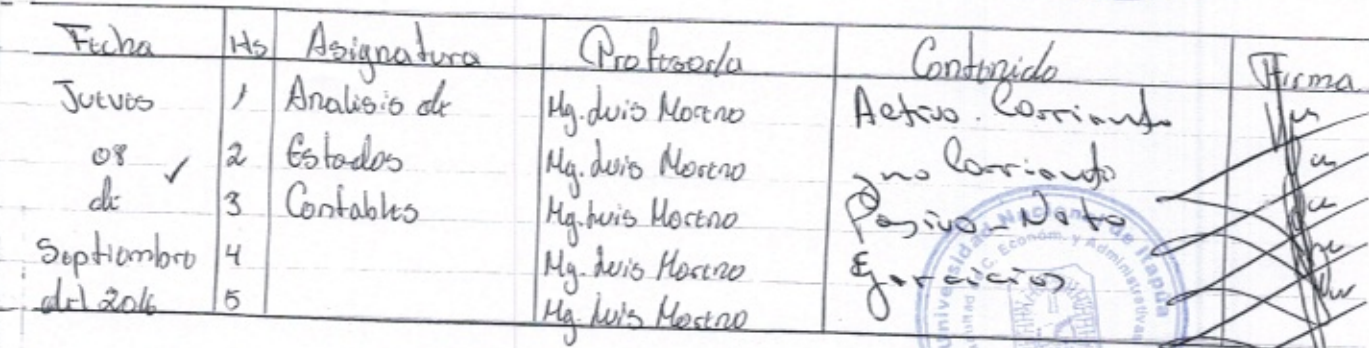 Fecha Hs Asignatura Profesor/a Contenido Firma
Jueves 1 Analisis de Mg. Luis Moreno Activo. Corriente
08 2 Estados Mg. Luis Moreno y no Corriente
de 3 Contables Mg. Luis Moreno Pasivo - Neto
Septiembre 4 Mg. Luis Moreno Ejercicios
del 2016 5 Mg. Luis Moreno
Universidad Nacional de Itapúa
C. Económ. y Administrativas